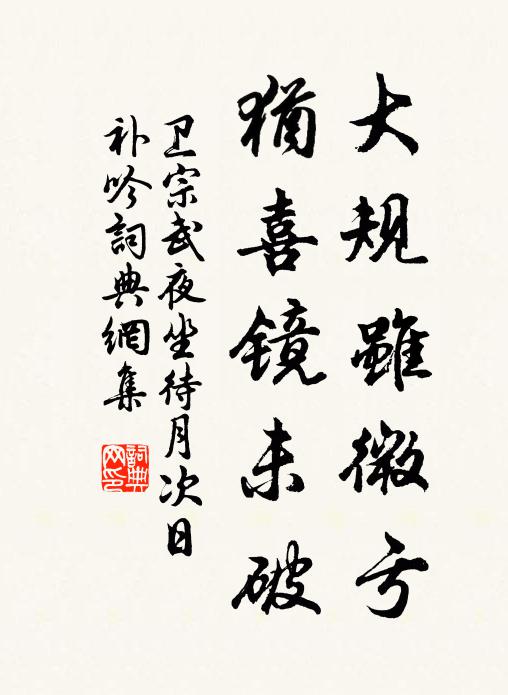 大规雖微亏
猶喜镜未破
卫宗武夜坐待月次日
补吟詞典網集
詞典网印